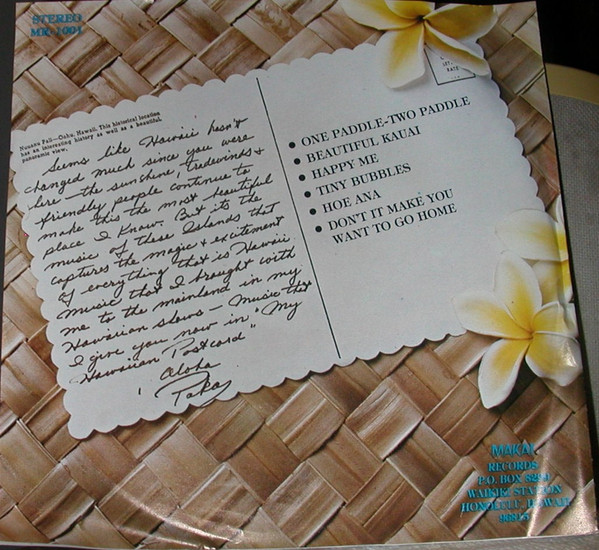 STEREO
Nuuanu Pali—Oahu, Hawaii. This historical location
has an interesting history as well as a beautiful
panoramic view.
Seems like Hawaii hasn't
changed much since you were
here — the sunshine, tradewinds +
friendly people continue to
make this the most beautiful
place I know. But its the
music of these Islands that
captures the magic + excitement
of everything that is Hawaii
music that I brought with
me to the mainland in my
Hawaiian shows — Music that
I give you now in "My
Hawaiian Postcard"
Aloha
RATE
ONE PADDLE-TWO PADDLE
BEAUTIFUL KAUAI
HAPPY ME
TINY BUBBLES
HOE ANA
DON'T IT MAKE YOU
WANT TO GO HOME
MAKAI
RECORDS
P.O. BOX
WAIKIKI STATION
HONOLULU, HAWAII